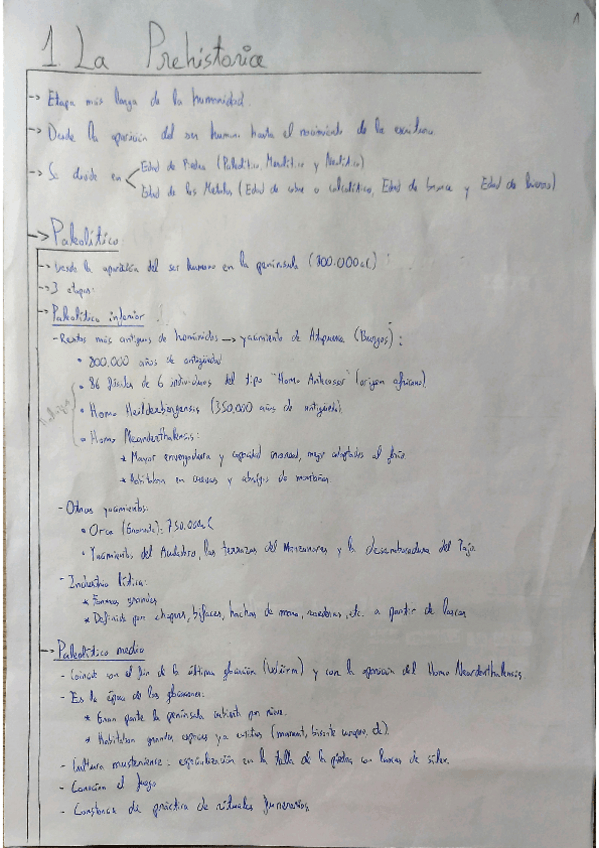 1
1. La Prehistoria
-> Etapa más larga de la humanidad.
-> Desde la aparición del ser humano hasta el nacimiento de la escritura
-> Se divide en
Edad de Piedra (Paleolítico, Mesolítico y Neolítico)
Edad de los Metales (Edad de cobre o calcolítico, Edad de bronce y Edad de hierro)
-> Paleolítico
-> Desde la aparición del ser humano en la península (800.000 aC):
-> 3 etapas:
-> Paleolítico inferior:
- Restos más antiguos de homínidos -> yacimiento de Atapuerca (Burgos):
• 800.000 años de antigüedad
• 86 fósiles de 6 individuos del tipo "Homo Antecesor" (origen africano).
• Homo Heilderbergensis (350.000 años de antigüedad).
• Homo Neanderthalensis:
* Mayor envergadura y capacidad craneal, mejor adaptados al frío
* Habitaban en cuevas y abrigos de montañas
- Otros yacimientos:
• Orce (Granada): 750.000aC
• Yacimiento del , las terrazas del Manzanares y la desembocadura del Tajo.
- Industria lítica:
* Formas grandes
* Definido por choppers, bifaces, hachas de mano, raederas, etc. a partir de lascas
-> Paleolítico medio
- Coincide con el fin de la última glaciación (Würm) y con la aparición del Homo Neanderthalensis
- Es la época de los glaciares:
* Gran parte la península cubierta por nieve.
* Habitaban grandes especies ya extintas (mamut, bisonte europeo, etc).
- Cultura musteriense: especialización en la talla de la piedra con lascas de sílex.
- Conocían el fuego
- Constancia de práctica de rituales funerarios.